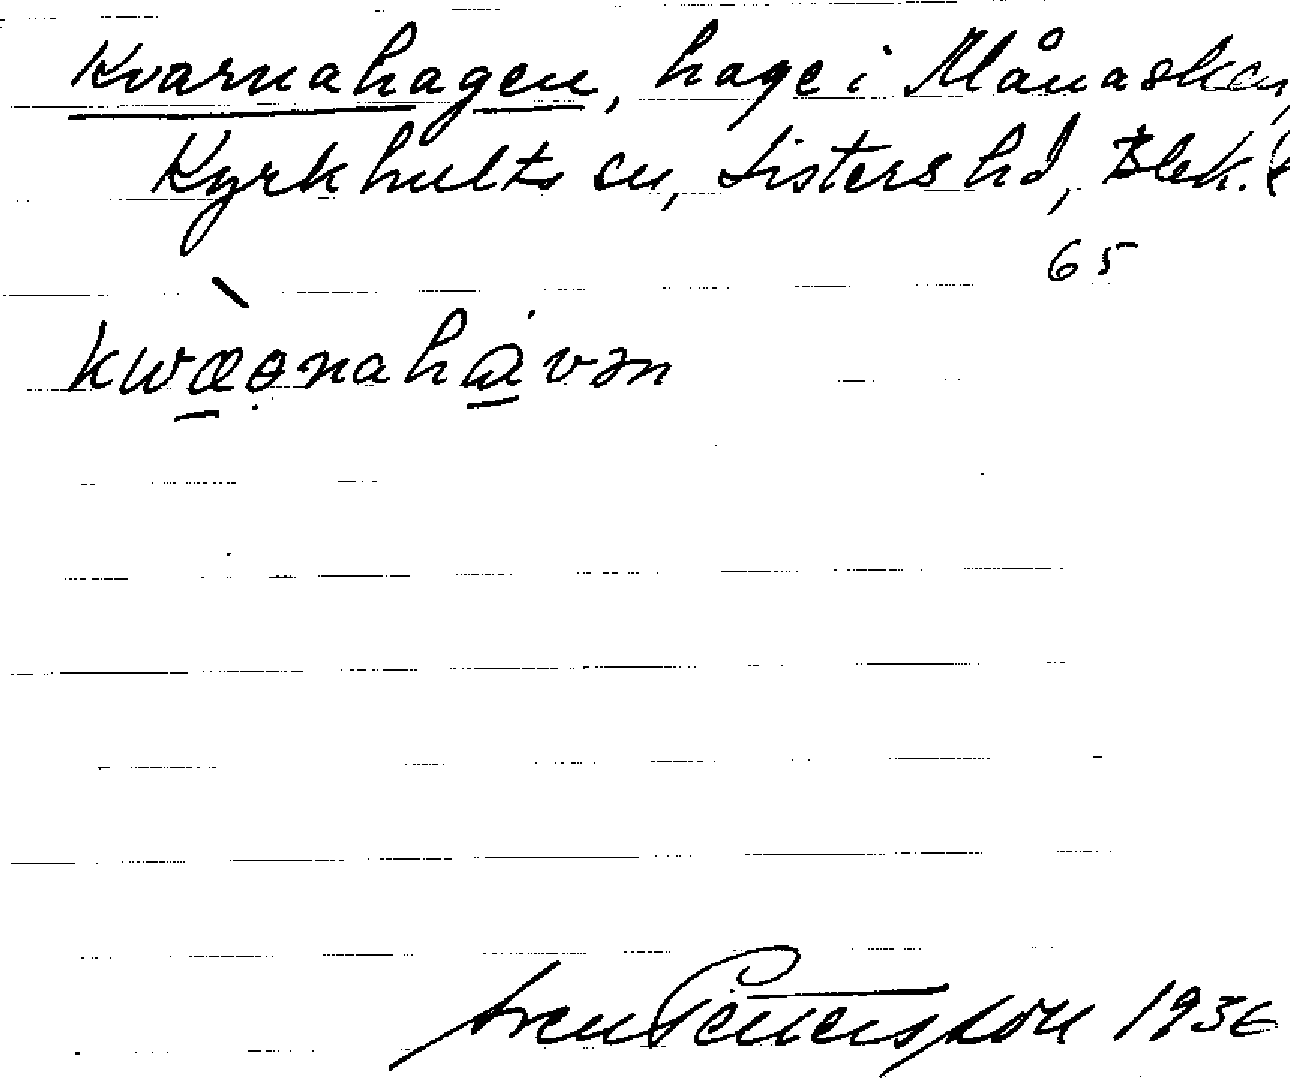 Kvarnahagen, hage i Månasken,
Kyrkhults sn, Listers hd, Blek. l
65
kwæɵnahavən
Sven Pettersson 1936